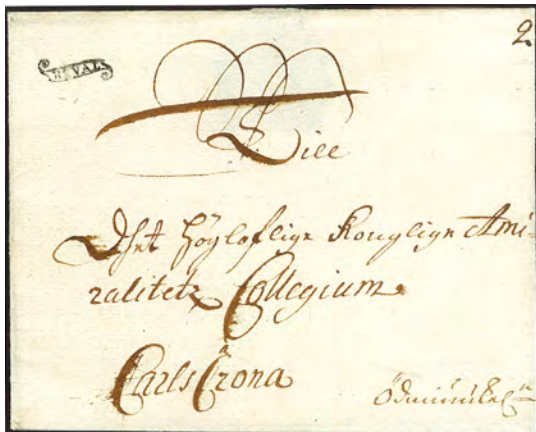 2.
REVAL
Till
Det Högloflige Konglige Ami-
ralitetz Collegium
Carls Crona